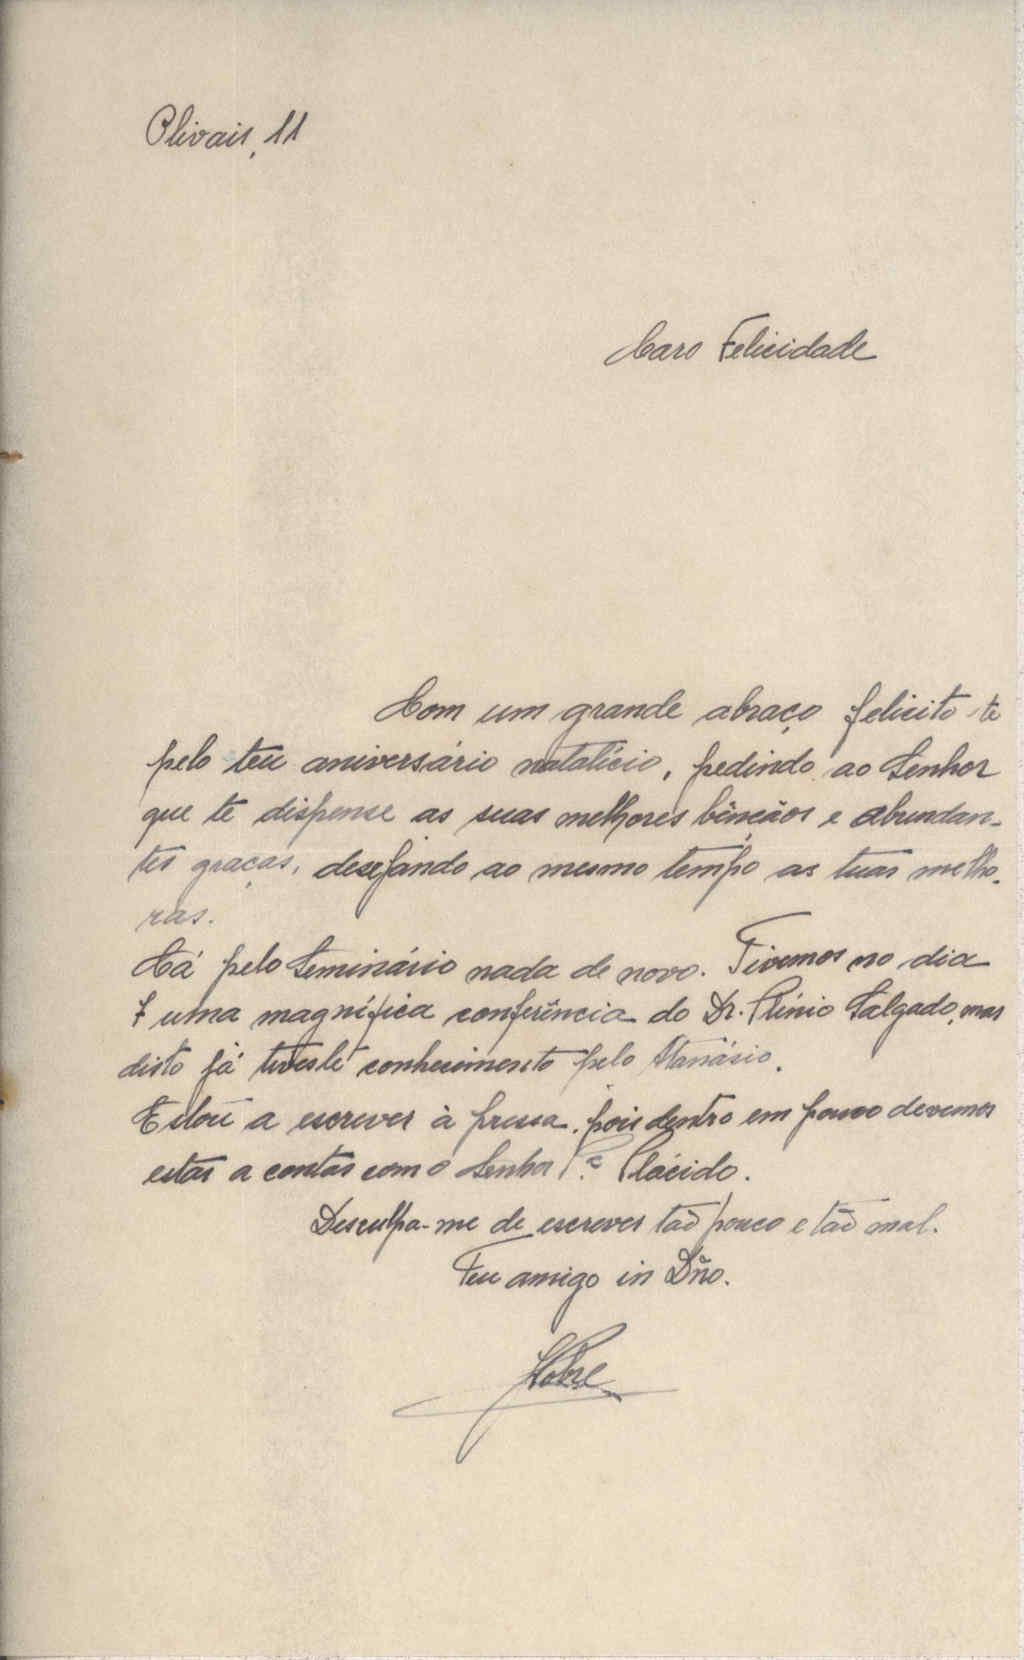 Olivais, 11
Caro Felicidade
Com um grande abraço felicito-te
pelo teu aniversário natalício, pedindo ao Senhor
que te dispense as suas melhores bênçãos e abundan-
tes graças, desejando ao mesmo tempo as tuas melho-
ras.
Cá pelo Seminário nada de novo. Tivemos no dia
7 uma magnífica conferência do Dr. Plínio Salgado, mas
disto já tiveste conhecimento pelo Atanásio.
Estou a escrever à pressa, pois dentro em pouco devemos
estar a contas com o Senhor P.e Plácido.
Desculpa-me de escrever tão pouco e tão mal.
Teu amigo in Dño.
Nobre